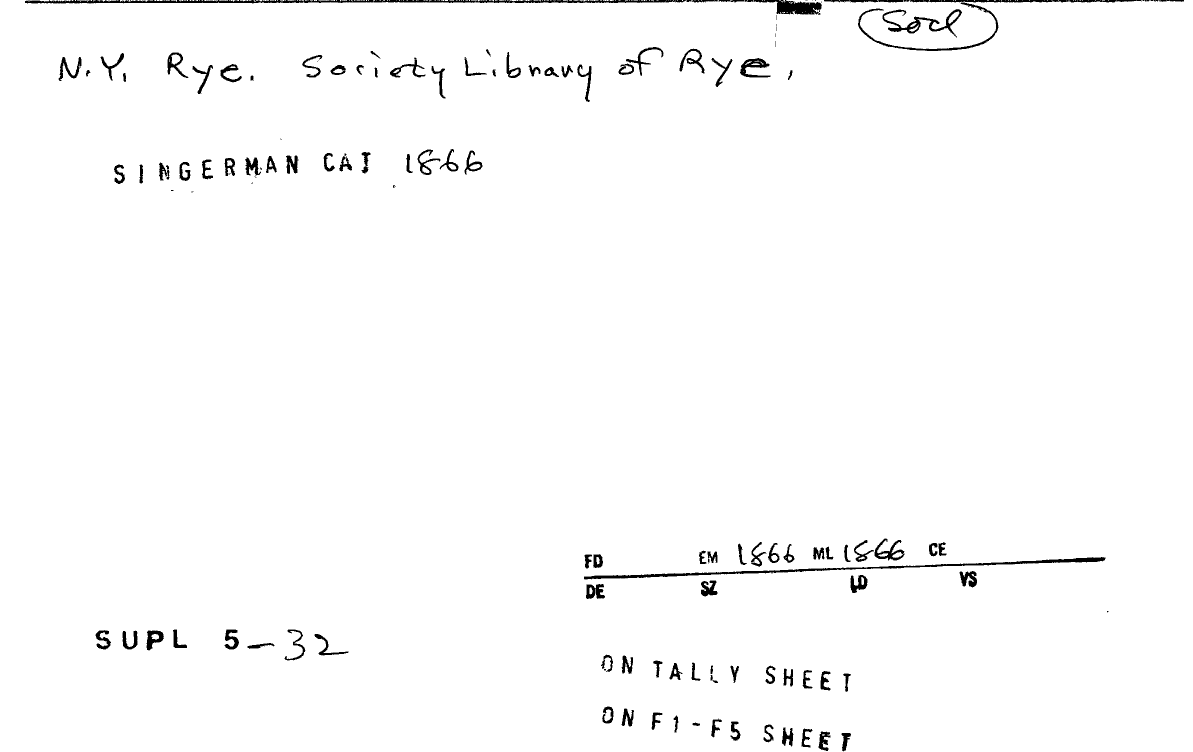 Socl
N.Y. Rye. Society Library of Rye,
SINGERMAN CAT 1866
FD EM 1866 ML 1866 CE
DE SZ LD VS
SUPL 5-32
ON TALLY SHEET
ON F1-F5 SHEET